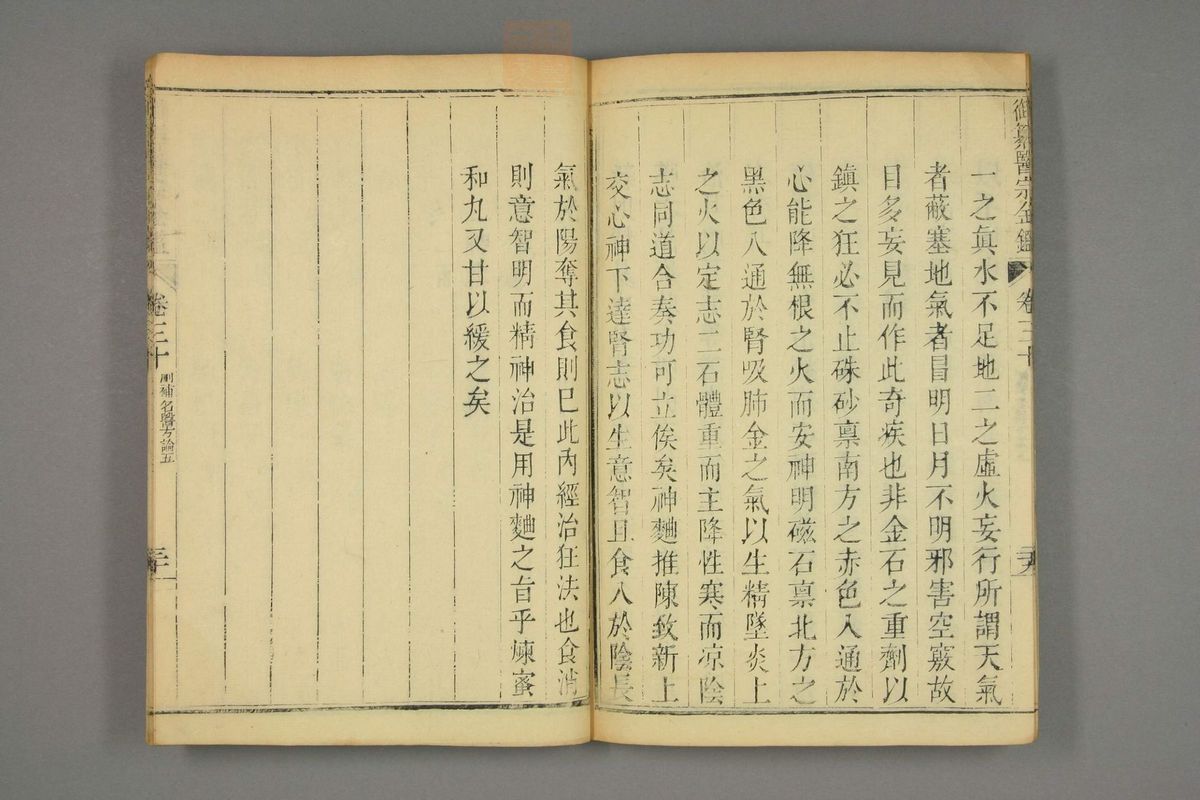 御纂醫宗金鑑
卷三十
一之真水不足地二之虛火妄行所謂天氣
者蔽塞地氣者冒明日月不明邪害空竅故
目多妄見而作此奇疾也非金石之重劑以
鎮之狂必不止硃砂稟南方之赤色入通於
心能降無根之火而安神明磁石稟北方之
黑色入通於腎吸肺金之氣以生精墜炎上
之火以定志二石體重而主降性寒而凉陰
志同道合奏功可立俟矣神麯推陳致新上
交心神下達腎志以生意智且食入於陰長
氣於陽奪其食則已此內經治狂法也食消
則意智明而精神治是用神麯之旨乎煉蜜
和丸又甘以緩之矣
卷三十
刪補名醫方論五